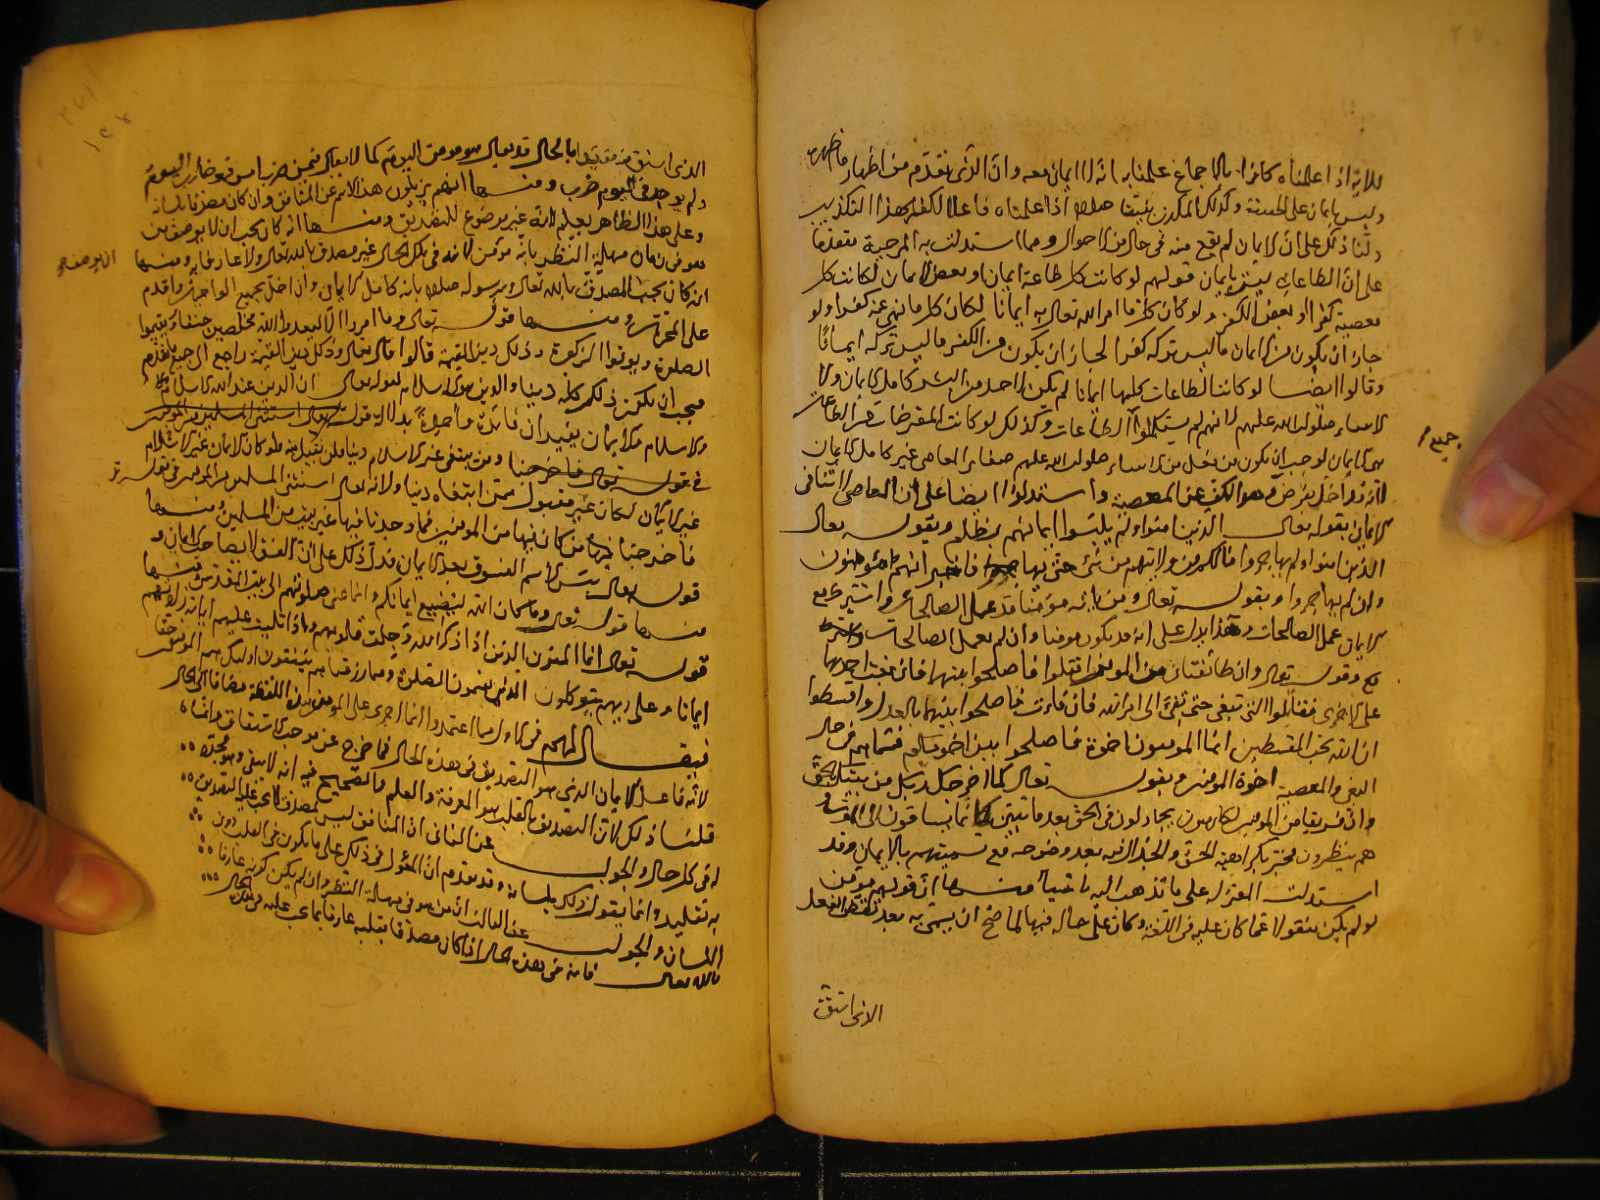 للآية اذا علمناه كافرا بالاجماع علمنا به انه لا ايمان معه وان الذى تقدم من اظهار ما ظهر
وليس بايمان على الحقيقة وكذلك المكذب نبينا صلعم اذا علمناه فاعلا للكفر هذا التكذيب
دلنا ذلك على ان الايمان لم يقع منه فى حال من الاحوال ومما استدلت به المرجية متقدما
على ان الطاعات ليست بايمان قولهم لو كانت كل طاعة ايمان او بعض الايمان لكانت كل
معصية كفرا او بعض الكفر ولو كان كل ما امر الله تعالى به ايمانا لكان كل ما نهى عنه كفرا ولو
جاز ان يكون من الايمان ما ليس تركه كفرا لجاز ان يكون من الكفر ما ليس تركه ايمانا
وقالوا ايضا لو كانت الطاعات كلها ايمانا لم يكن لاحد من البشر كامل الايمان ولا
الانبياء صلوات الله عليهم لانهم لم يستكملوا الطاعات وكذلك لو كانت المفترضات من الطاعات
هى الايمان لوجب ان يكون من نفى من الانبياء صلوات الله عليهم صغاير المعاصى غير كامل الايمان
لانه قد اخل بفرض وهو الكف عن المعصية واستدلوا ايضا على ان المعاصى لا تنافى
الايمان بقوله تعالى الذين امنوا ولم يلبسوا ايمانهم بظلم وبقوله تعالى
الذين امنوا ولم يهاجروا مالكم من ولايتهم من شئ حتى يهاجروا فاخبر انهم مؤمنون
وان لم يهاجروا وبقوله تعالى ومن ياته مؤمنا قد عمل الصالحات
الايمان عمل الصالحات وهذا يدل على انه قد يكون مومنا وان لم يعمل الصالحات
وقوله تعالى وان طائفتان من المومنين اقتتلوا فاصلحوا بينهما فان بغت احديهما
على الاخرى فقاتلوا التى تبغى حتى تفئ الى امر الله فان فاءت فاصلحوا بينهما بالعدل واقسطوا
ان الله يحب المقسطين انما المومنون اخوة فاصلحوا بين اخويكم فسماهم فى حال
البغى والمعصية اخوة المومنين وبقوله تعالى كما اخرجك ربك من بيتك بالحق
وان فريقا من المومنين لكارهون يجادلونك فى الحق بعد ما تبين كانما يساقون الى الموت و
هم ينظرون فخبر بكراهية الحق والجدال فيه بعد وضوحه مع تسميتهم بالايمان وقد
استدلت المعتزلة على ما تذهب اليه باشياء منها ان قولهم مؤمن
لو لم يكن منقولا عما كان عليه فى اللغة وكان على حاله فيها لما صح ان يسمى به بعد تقضى الفعل
الذى اشتق
جميع
الذى اشتق منه مقيدا بالحال قد يقال هو مومن اليوم كما لا يقال فيمن ضرب امس هو ضارب اليوم
ولم يوجد فى اليوم ضرب ومنها انهم يزيلون هذا الاسم عن المنافق وان كان مصدقا بلسانه
وعلى هذا الظاهر يعلم لانه غير موضوع للتصديق ومنها انه كان يجب ان لا يوصف من
هو فى زمان مهلة النظر بانه مؤمن لانه فى تلك الحال غير مصدق بالله تعالى ولا عارف به ومنها
انه كان يجب المصدق بالله تعالى وبرسوله صلعم بانه كامل الايمان وان اخل بجميع الواجبات واقدم
على المحرمات ومنها قوله تعالى وما امروا الا ليعبدوا الله مخلصين حنفاء ويقيموا
الصلوة ويوتوا الزكوة وذلك دين القيمة قالوا فالله تعالى وذلك دين القيمة راجع الى جميع ما تقدم
فيجب ان يكون ذلك كله دينا والدين هو الاسلام لقوله تعالى ان الدين عند الله الاسلام
والاسلام هو الايمان
فى قوله تعالى فاخرجنا ومن يبتغى غير الاسلام دينا فلن يقبل منه فلو كان الايمان غير الاسلام
غير الايمان لكان غير مقبول ممن ابتغاه دينا ولانه تعالى استثنى المسلمين من المومنين فى قوله تعالى
فاخرجنا من كان فيها من المومنين فما وجدنا فيها غير بيت من المسلمين ومنها
قوله تعالى بئس الاسم الفسوق بعد الايمان فدل ذلك على ان الفسق لا يصاحب الايمان و
منها قوله تعالى وما كان الله ليضيع ايمانكم وانما عنى صلوتهم الى بيت المقدس ومنها
قوله تعالى انما المومنون الذين اذا ذكر الله وجلت قلوبهم واذا تليت عليهم اياته زادتهم
ايمانا وعلى ربهم يتوكلون الذين يقيمون الصلوة ومما رزقناهم ينفقون اولئك هم المومنون حقا
فيقال لهم فى الاول مما اعتمدوا انما اجرى على المومن هذه اللفظة مضافا الى الحال
لانه فاعل الايمان الذى هو التصديق فى هذه الحال فما خرج عن موجب الاشتقاق وانما
قلنا ذلك لان التصديق بالقلب هو المعرفة والعلم والصحيح فيه انه لا يبقى وهو مجدد
له فى كل حال والجواب عن الثانى ان المنافق ليس بمصدق لما يجب عليه التصديق
به بقلبه وانما يقول ذلك بلسانه وقد تقدم ان المعول فى ذلك على ما يكون فى القلب دون
اللسان والجواب عن الثالث ان من هو فى مهلة النظر وان لم يكن كونه عارفا
بالله تعالى فانه فى هذه الحال اذا كان مصدقا بقلبه عارفا بما يجب عليه فى تلك الحال